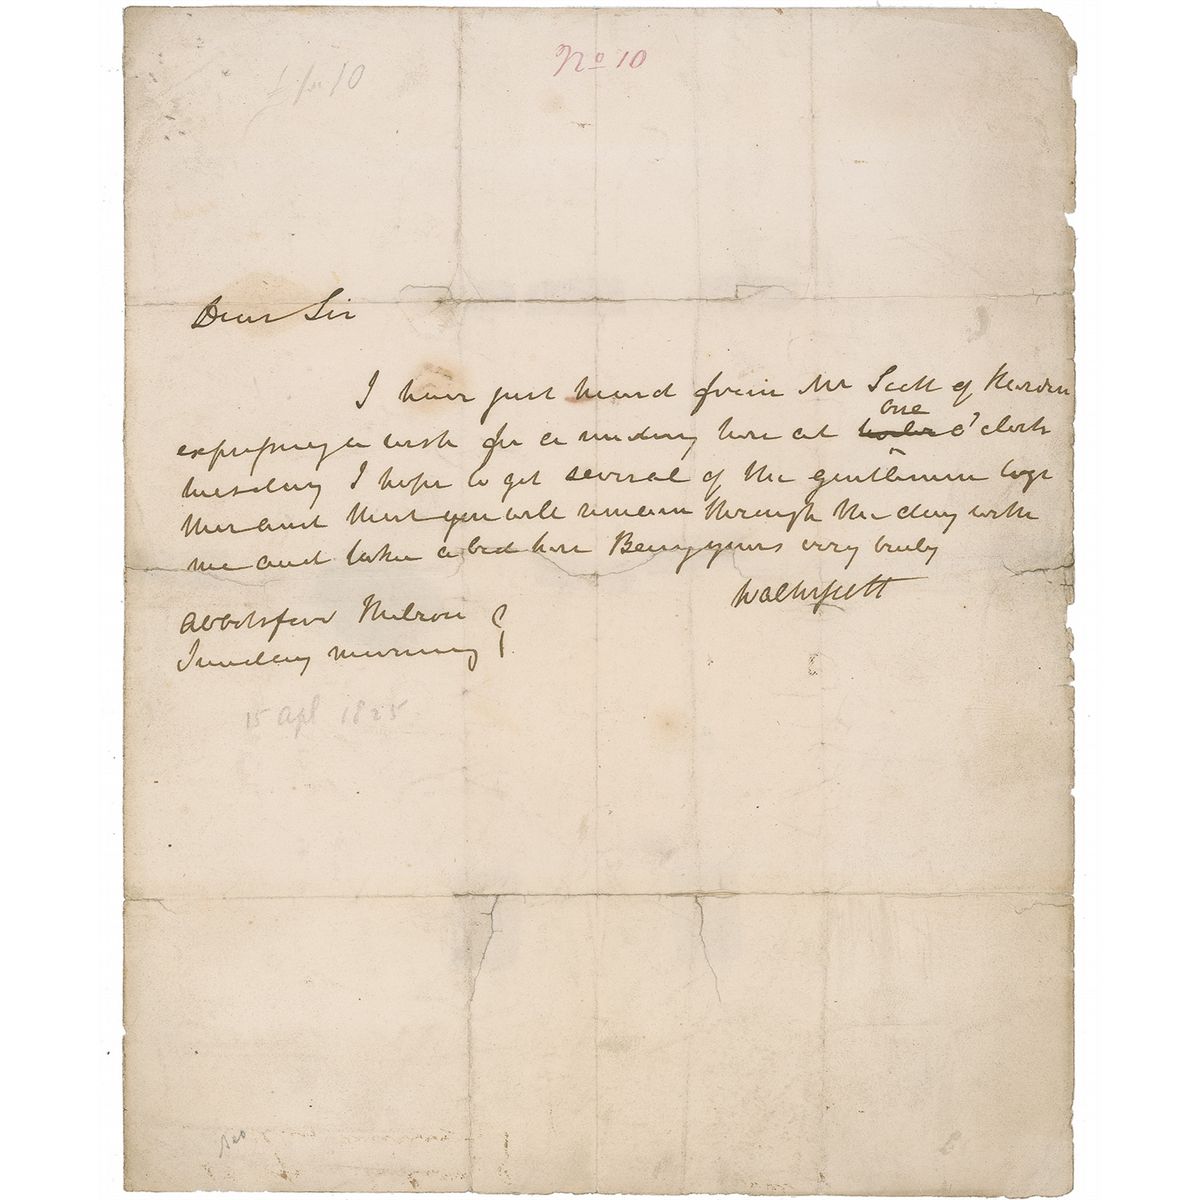 No 10
Dear Sir
I have just heard from Mr Scott of Harden
one
expressing a wish for a meeting here at o'clock
tuesday I hope to get several of the gentlemen toge
ther and that you will remain through the day with
me and take a bed here Being yours very truly
Walter Scott
Abbotsford Melrose
Sunday morning
15 Apl 1825